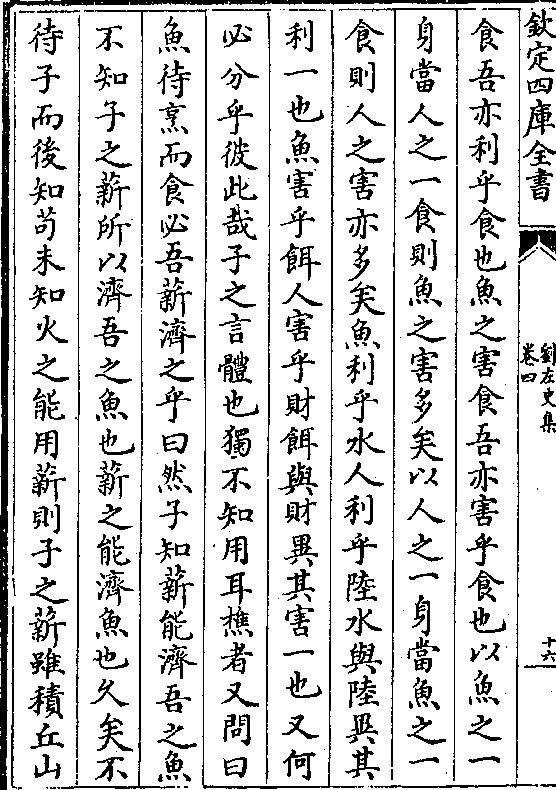 欽定四庫全書
劉左史集
卷四
十六
食吾亦利乎食也魚之害食吾亦害乎食也以魚之一
身當人之一食則魚之害多矣以人之一身當魚之一
食則人之害亦多矣魚利乎水人利乎陸水與陸異其
利一也魚害乎餌人害乎財餌與財異其害一也又何
必分乎彼此哉子之言體也獨不知用耳樵者又問曰
魚待烹而食必吾薪濟之乎曰然子知薪能濟吾之魚
不知子之薪所以濟吾之魚也薪之能濟魚也久矣不
待子而後知苟未知火之能用薪則子之薪雖積丘山